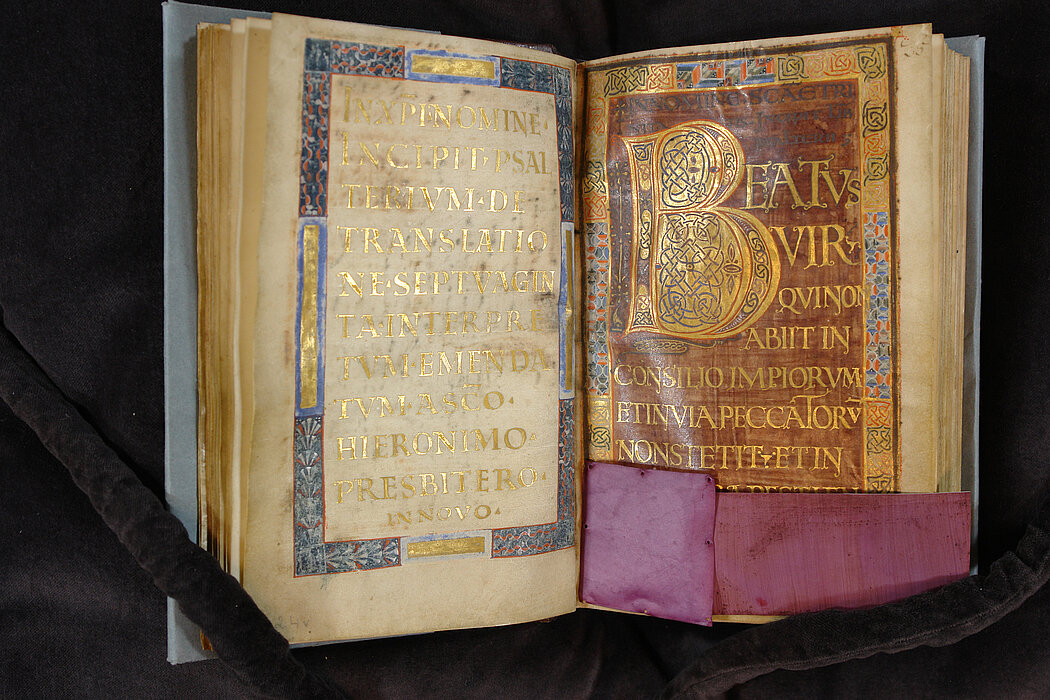 IN XP̅I NOMINE·
INCIPIT· PSAL
TERIVM· DE
TRANSLATIO
NE· SEPTVAGIN
TA· INTERPRE
TVM· EMENDA
TVM· A SC̅O·
HIERONIMO·
PRESBITERO·
IN NOVO·
BEATVS
VIR·
QVI NON
ABIIT IN
CONSILIO IMPIORVM
ET IN VIA PECCATORV̅
NON STETIT· ET IN